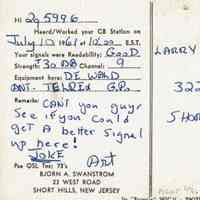 HI 2Q5996
Heard/Worked your CB Station on
July 10 1961 at 12:20 E.S.T.
Your signals were Readability: GOOD
Strength: +30 DB Channel: 9
Equipment here: DEWALD
ANT. TELREX G.P.
Remarks: CAN'T you guys
See if you could
get A better Signal
up here!
JOKE
Art
Pse QSL Tnx 73's
BJORN A. SWANSTROM
23 WEST ROAD
SHORT HILLS, NEW JERSEY
LARRY
322
SHOR